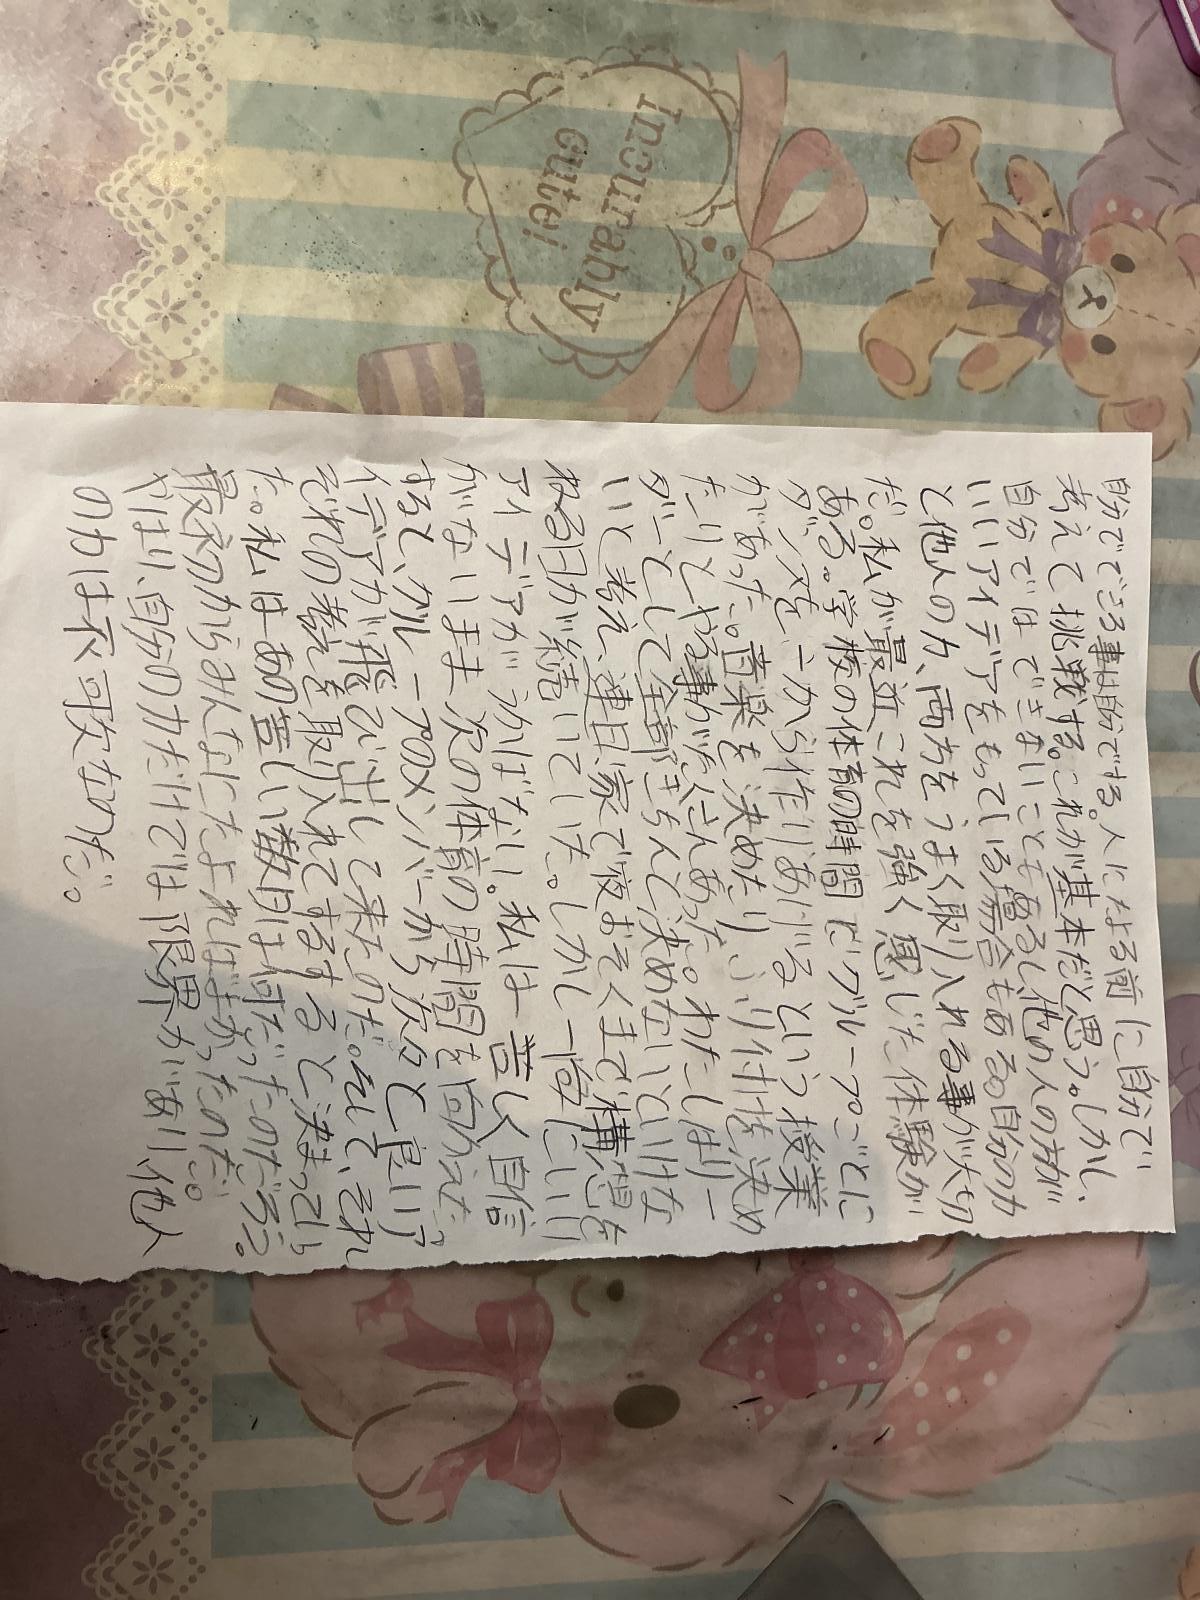 自分でできる事は自分でする。人にたよる前に自分で
考えて挑戦する。これが基本だと思う。しかし、
自分ではできないこともあるし、他の人の方が
いいアイデアをもっている場合もある。自分の力
と他人の力、両方をうまく取り入れる事が大切
だ。私が最近これを強く感じた体験が
ある。学校の体育の時間でグループごとに
ダンスを一から作りあげるという授業
があった。音楽を決めたり、ふり付を決め
たりとやる事がたくさんあった。わたしはリー
ダーとして全部きちんと決めないといけな
いと考え、連日家で夜おそくまで構想を
ねる日が続いていた。しかし一向にいい
アイデアがうかばない。私は苦しく自信
がないまま次の体育の時間を向かえた。
すると、グループのメンバーから次々と良いア
イデアが飛び出して来たのだ。そして、それ
ぞれの考えを取り入れてするすると決まってい
た。私はあの苦しい数日は何だったのだろう。
最初からみんなにたよればよかったのだ。
やはり、自分の力だけでは限界があり他人
の力は不可欠なのだ。
Incurably
cute!